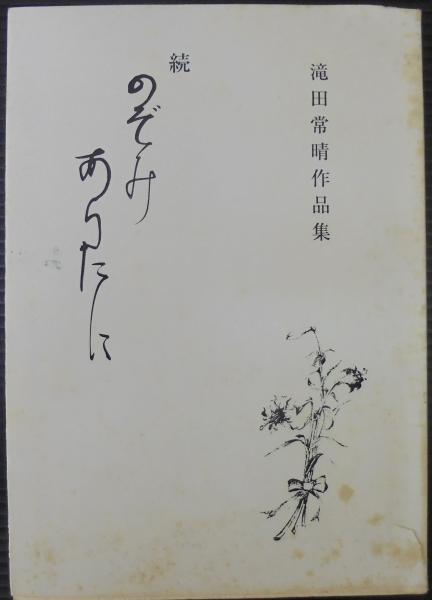 滝田常晴作品集
続
のぞみ
あらたに